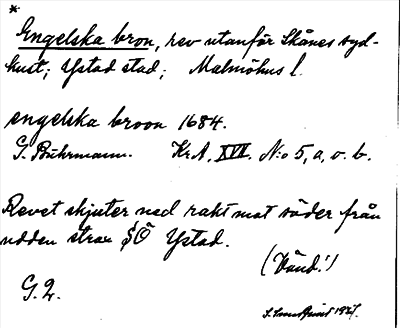 *
Engelska bron, rev utanför Skånes syd-
kust; Ystad stad; Malmöhus l.
engelska broon 1684.
G. Buhrmann. Kr.A, XVII. N:o 5, a, o. b.
Revet skjuter ned rakt mot söder från
udden strax SÖ Ystad.
(Vänd!)
G. 2.
1927.